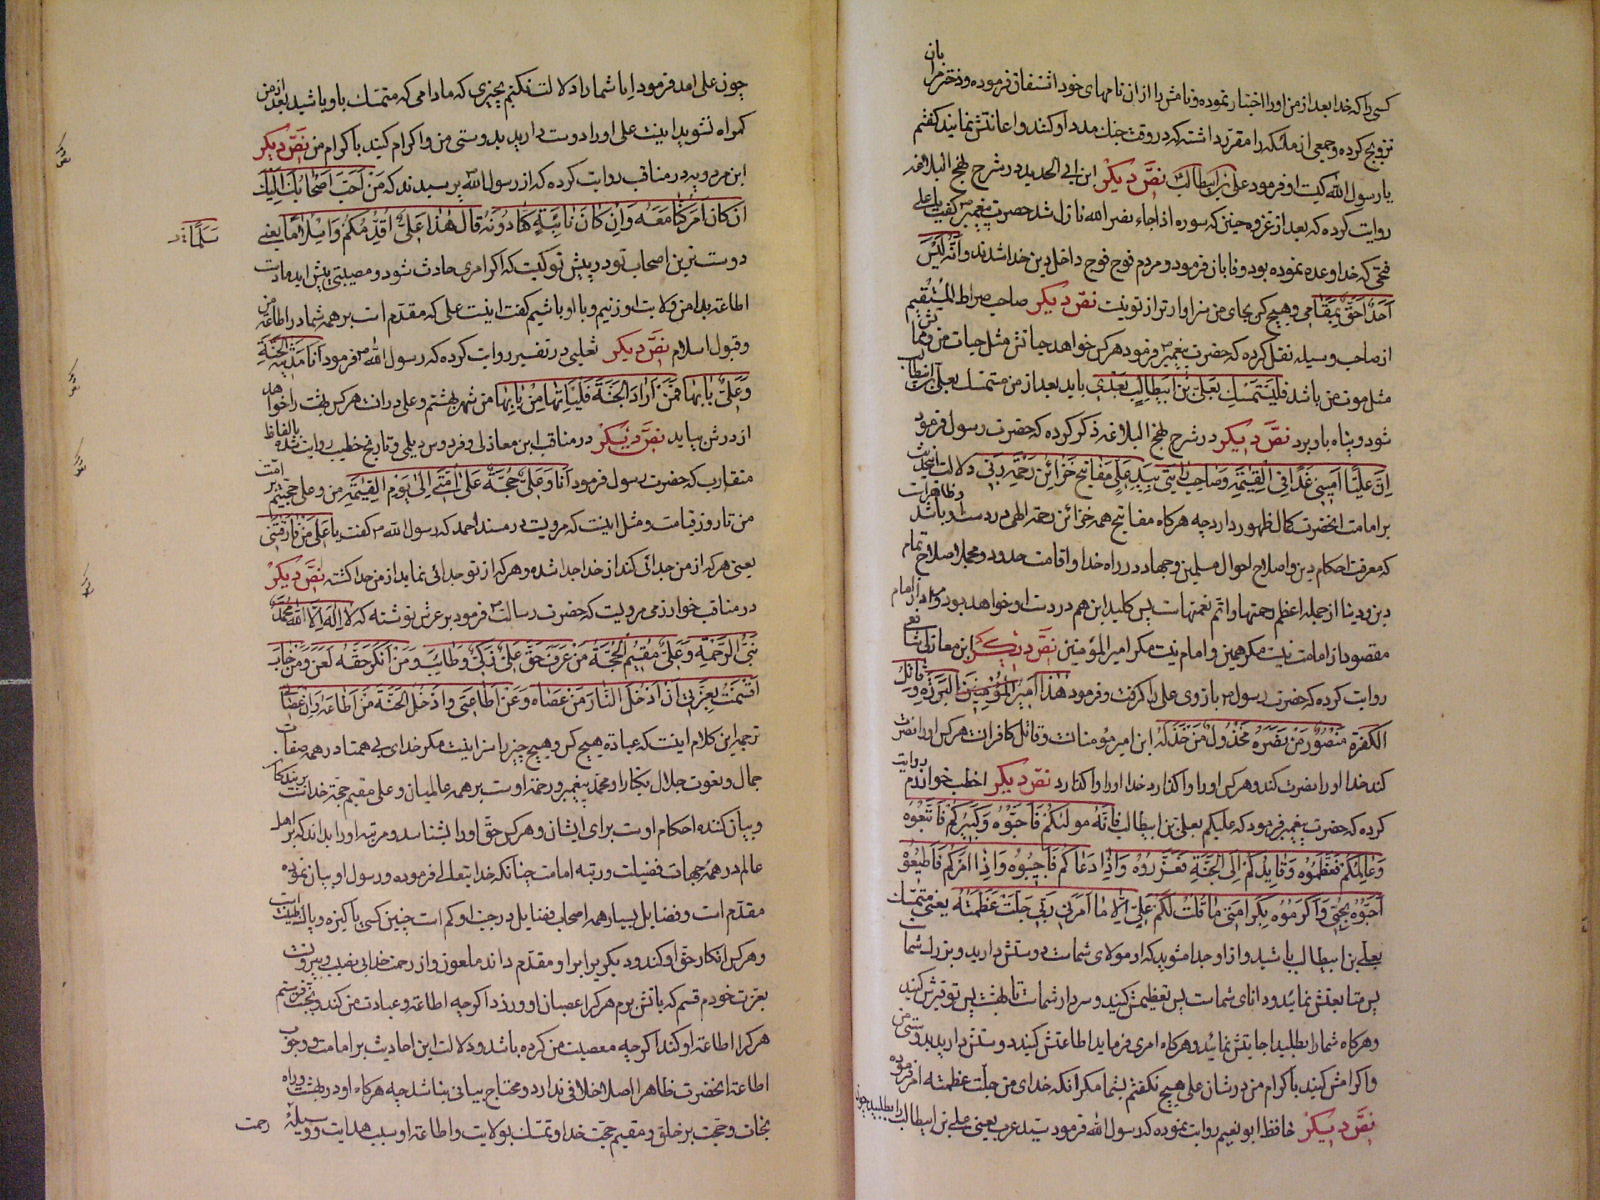 کسی را که خدا بعد از من او را اختیار نموده و نامش را از ان نامهای خود اشتقاق فرموده و دخترم را بان
تزویج کرده و جمعی از ملائکه را مقرر داشته که در وقت جنک مدد او کنند و اعانتش نمایند کفتم
یا رسول الله کیست او فرمود علی بن ابیطالب نص دیکر ابن ابی الحدید در شرح نهج البلاغه
روایت کرده که بعد از غزوه حنین که سوره اذا جاء نصر الله نازل شد حضرت پیغمبر کفت یا علی
فتحی که خدا وعده نموده بود وفا بان فرمود و مردم فوج فوج داخل دین خدا شدند و انه لیس
احد احق بمقامی و هیچ کس بجای من سزاوارتر از تو نیست نص دیکر صاحب صراط المستقیم
از صاحب وسیله نقل کرده که حضرت پیغمبر فرمود هر کس خواهد حیاتش مثل حیات من و مماتش
مثل موت من باشد فلیتمسک بعلی بن ابیطالب بعدی باید بعد از من متمسک بعلی بن ابیطالب
شود و پناه باو برد نص دیکر در شرح نهج البلاغه ذکر کرده که حضرت رسول فرمود
ان علیا امینی غدا فی القیمة و صاحب رایتی بید علی مفاتیح خزائن رحمة ربی دلالت این حدیث
بر امامت انحضرت کمال ظهور دارد چه هر کاه مفاتیح همه خزائن رحمة الهی در دست او باشد و ظاهر است
که معرفت احکام دین و اصلاح احوال مسلمین و جهاد در راه خدا و اقامت حدود و مجملا اصلاح تمام
دین و دنیا از جمله اعظم رحمتها و اتم نعمتهاست پس کلید این هم در دست او خواهد بود و مراد از امام
مقصود از امامت نیست مکر همین و امام نیست مکر امیر المؤمنین نص دیکر ابن مغازلی شافعی
روایت کرده که حضرت رسول بازوی علی را کرفت و فرمود هذا امیر المؤمنین البررة و قاتل
الکفرة منصور من نصره مخذول من خذله این امیر مؤمنانست و قاتل کافرانست هر کس او را نصرت
کند خدا او را نصرت کند و هر کس او را واکذارد خدا او را واکذارد نص دیکر اخطب خوارزم روایت
کرده که حضرت پیغمبر فرمود که علیکم بعلی بن ابیطالب فانه مولیکم فاحبوه و کبیرکم فاتبعوه
و عالمکم فعظموه و قایدکم الی الجنة فعزروه و اذا دعاکم فاجیبوه و اذا امرکم فاطیعوه
احبوه بحبی و اکرموه بکرامتی ما قلت لکم علی الا ما امرنی ربی جلت عظمته یعنی متمسک
بعلی بن ابیطالب باشید و از او جدا مشوید که او مولای شماست دوستش دارید و بزرک شماست
پس متابعتش نمائید و دانای شماست پس تعظیمش کنید و سردار شماست تا بهشت پس توقیرش کنید
و هرکاه شما را بطلبد اجابتش نمائید و هرکاه امری فرماید اطاعتش کنید دوستش دارید بدوستی من
و اکرامش کنید باکرام من در شان علی هیچ نکفتم بشما مکر انکه خدای من جلت عظمته امر فرموده
نص دیکر حافظ ابو نعیم روایت نموده که رسول الله فرمود سید عرب یعنی علی بن ابیطالب را بطلبید چون
چون علی امد فرمود ایا شما را دلالت نکنم بچیزی که مادامی که متمسک باو باشید بعد از من
کمراه نشوید اینست علی او را دوست دارید بدوستی من و اکرام کنید باکرام من نص دیکر
ابن مردویه در مناقب روایت کرده که از رسول الله پرسیدند که من احب اصحابک الیک
ان کان امر کنا معه و ان کان نائبة کنا دونه قال هذا علی اقدمکم و اسلاما یعنی
سلما
دوسترین اصحاب تو در پیش تو کیست که اکر امری حادث شود و مصیبتی پیش اید ما دست
اطاعة بدامن ولایت او زنیم و با او باشیم کفت اینست علی که مقدم است بر همه شما در اطاعة من
و قبول اسلام نص دیکر ثعلبی در تفسیر روایت کرده که رسول الله فرمود انا مدینة الجنة
و علی بابها فمن اراد الجنة فلیاتها من بابها من شهر بهشتم و علی در انست هر کس بهشت را خواهد
از درش بیاید نص دیکر در مناقب ابن مغازلی و فردوس دیلمی و تاریخ خطیب روایت شده بالفاظ
متقارب که حضرت رسول فرمود انا و علی حجة علی امتی الی یوم القیمة من و علی حجتیم بر امت
من تا روز قیامت و مثل اینست که مرویست در مسند احمد که رسول الله کفت یا علی من فارقنی
یعنی هر که از من جدائی کند از خدا جدا شده و هر که از تو جدائی نماید از من جدا کشته نص دیکر
در مناقب خوارزمی مرویست که حضرت رسالت فرمود بر عرش نوشته که لا اله الا الله محمد
نبی الرحمة و علی مقیم الحجة من عرف حق علی زکی و طاب و من انکر حقه لعن و خاب
اقسمت بعزتی ان ادخل النار من عصاه و عن اطاعنی و ادخل الجنة من اطاعه و ان عصانی
ترجمه این کلام اینست که عبادة هیچ کس و هیچ چیز را سزا نیست مکر خدای بی همتا در همه صفات
جمال و نعوت جلال یکتا را و محمد پیغمبر و رحمة اوست بر همه عالمیان و علی مقیم حجة خداست بر بندکان
و بیان کننده احکام اوست برای ایشان و هر کس حق او را بشناسد و مرتبه او را بداند که بر اهل
عالم در همه جهات فضیلت و رتبه امامت چنانکه خدایتعالی فرموده و رسول او بیان نموده
مقدم است و فضایل بسیار همه اصحاب فضایل در جنب او کم است چنین کسی پاکیزه و پاک طینت است
و هر کس انکار حق او کند و دیکر برابر او مقدم داند ملعون و از رحمت خدا بی نصیب و بیرونست
بعزت خودم قسم که باتش برم هر کرا عصیان او ورزد اکرچه اطاعة و عبادت من کند و بجنت فرستم
هر کرا اطاعة او کند اکرچه معصیت من کرده باشد و دلالت این احادیث بر امامت و وجوب
اطاعة انحضرت ظاهر اصلا خلافی ندارد و محتاج بیانی نباشد چه هرکاه او در بهشت و راه
نجات و حجت بر خلق و مقیم حجت خدا و تمسک بولایت و اطاعة او سبب هدایت و وسیله
رحمت